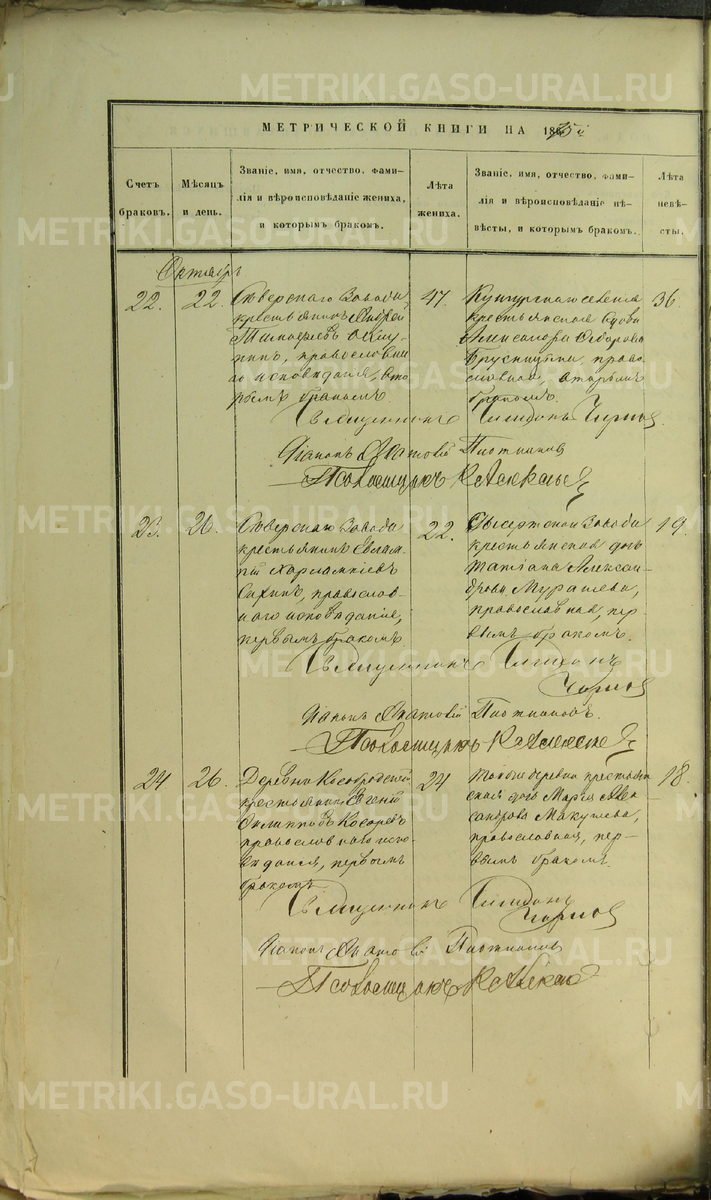 МЕТРИЧЕСКОЙ КНИГИ НА 1875й
Счетъ браковъ.
Мѣсяцъ и день.
Званіе, имя, отчество, фами-
лія и вѣроисповѣданіе жениха,
и которымъ бракомъ.
Лѣта жениха.
Званіе, имя, отчество, фами-
лія и вѣроисповѣданіе не-
вѣсты, и которымъ бракомъ.
Лѣта невѣ-
сты.
Октябрь
22.
22.
Сѣверскаго Завода
крестьянинъ Андрей
Тимофѣевъ
православна
го исповѣданія, вто
рымъ бракомъ
47.
крестьянская вдова
Александра Ѳедорова
Брусницына, право
славная, вторымъ
бракомъ.
36.
Священникъ Чернов
Діаконъ Платникова
Псаломщикъ
23.
26.
Сѣверскаго Завода
крестьянинъ Евлам-
пій Харлампіевъ
православ-
наго исповѣданія,
первымъ бракомъ
22.
Сысертскаго Завода
крестьянская дочь
Татіана Алексан-
дрова Мурашева,
православная, пер-
вымъ бракомъ.
19.
Священникъ
Чернов
Діаконъ Платниковъ.
Псаломщикъ
24
26.
Деревни Кособродской
крестьянинъ Евгеній
Филипповъ Косаревъ
православнаго испо-
вѣданія, первымъ
бракомъ
24
той же деревни крестьян
ская дочь Марія Алек
сандрова Макушева,
православная, пер-
вымъ бракомъ.
18.
Священникъ
Чернов
Діаконъ Платниковъ
Псаломщикъ
METRIKI.GASO-URAL.RU